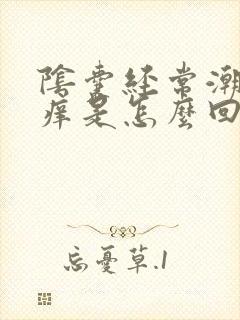 陰囊經常潮
痒是怎麼回
忘憂草.1